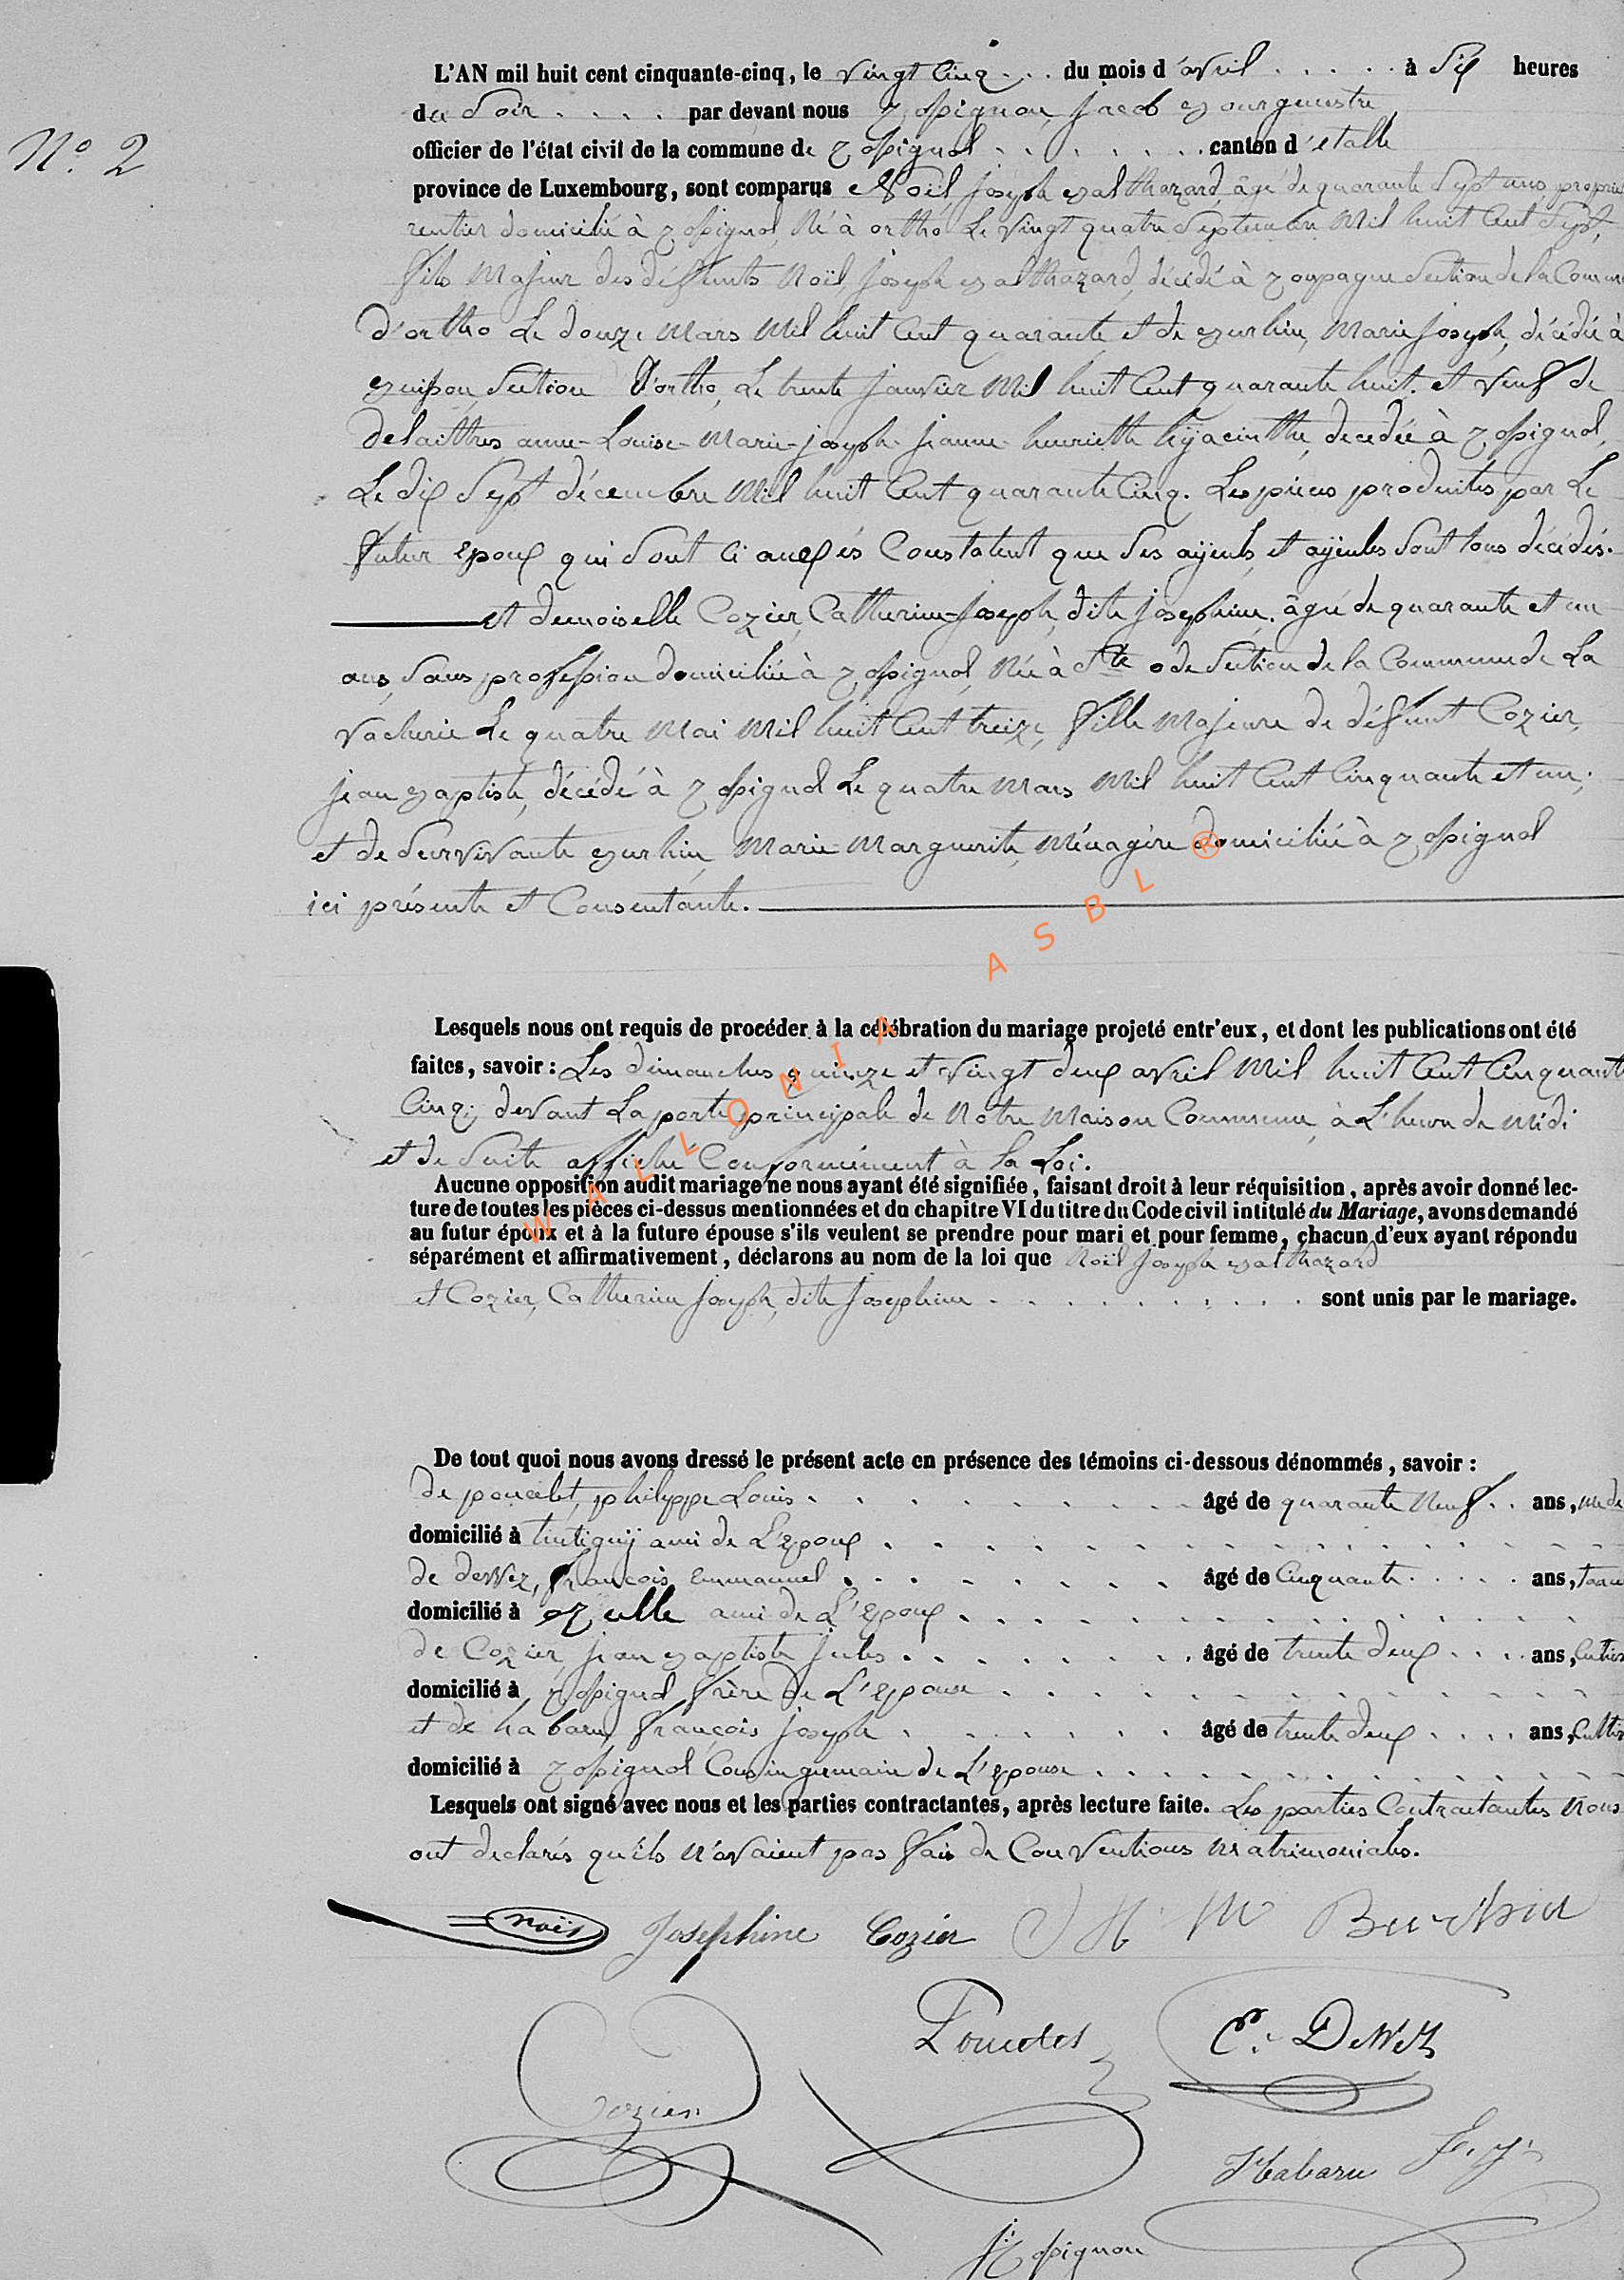 N.º 2
L'AN mil huit cent cinquante-cinq, le vingt Cinq . . . du mois d'avril . . . . . à Six heures
du Soir . . . . par devant nous Rossignon, Jacob Bourgmestre
officier de l'état civil de la commune de Rossignol . . . . . . canton d'etalle
province de Luxembourg, sont comparus Noël Joseph Balthazard, âgé de quarante Sept ans, proprié
rentier domicilié à Rossignol, Né à ortho Le Vingt quatre Septembre Mil huit Cent Sept,
fils Majeur des défunts Noël, Joseph Balthazard, décédé à Roupagne Section de la Commune
d'ortho Le douze Mars Mil huit Cent quarante et de Burhin, Marie Joseph, décédée à
Buisson, Section d'ortho, Le trente Janvier Mil huit Cent quarante huit. et Veuf de
delaittres anne-Louise-Marie-joseph-jeanne-henriette hÿjacinthe, decedée à Rossignol,
Le dix Sept décembre Mil huit Cent quarante Cinq. Les pièces produites par Le
futur Epoux qui Sont Ci anexés Constatent que Ses aÿeuls et aÿeules Sont tous décédés.
et demoiselle Cozier, Catherine-Joseph, dite Josephine, âgée de quarante et un
ans, Sans profession domiciliée à Rossignol, Née à Ste ode Section de la Commune de La
Vacherie Le quatre Mai Mil huit Cent treize, fille Majeure de défunt Cozier,
jean Baptiste, décédé à Rossignol Le quatre Mars Mil huit Cent Cinquante et un;
et de Survivante Burhin, Marie Marguerite, Ménagère domiciliée à Rossignol
ici présente et Consentante.
Lesquels nous ont requis de procéder à la célébration du mariage projeté entr'eux, et dont les publications ont été
faites, savoir : Les dimanches quinze et vingt deux avril Mil huit Cent Cinquante
Cinq; devant La porte principale de Notre Maison Commune, à L'heure de Midi
et de Suite affiché Conformément à la Loi.
Aucune opposition audit mariage ne nous ayant été signifiée, faisant droit à leur réquisition, après avoir donné lec-
ture de toutes les pièces ci-dessus mentionnées et du chapitre VI du titre du Code civil intitulé du Mariage, avons demandé
au futur époux et à la future épouse s'ils veulent se prendre pour mari et pour femme, chacun d'eux ayant répondu
séparément et affirmativement, déclarons au nom de la loi que Noël Joseph Balthazard
et Cozier, Catherine Joseph, dite Josephine . . . . . . . . . sont unis par le mariage.
De tout quoi nous avons dressé le présent acte en présence des témoins ci-dessous dénommés, savoir :
de poncelet, philippe Louis . . . . . . . . . âgé de quarante Neuf . . ans, méde
domicilié à tintigny ami de L'Epoux . . . . . . . . . . . . . .
de deWez, françois Emmanuel . . . . . . . . âgé de Cinquante . . . . ans, Tanne
domicilié à ami de L'Epoux . . . . . . . . . . . . .
de Cozier, jean Baptiste Jules . . . . . . . . âgé de trente deux . . . . ans, Cultiv
domicilié à Rossignol frère de L'Epouse . . . . . . . . . . . .
et de habaru, françois Joseph . . . . . . . âgé de trente deux . . . . ans, Cultiv
domicilié à Rossignol Cousin germain de L'Epouse . . . . . . . . . . .
Lesquels ont signé avec nous et les parties contractantes, après lecture faite. Les parties Contractantes Nous
ont declarés qu'ils N'avaient pas fais de Conventions Matrimoniales.
Noël Josephine Cozier M Burhin
Poncelet E. DeWez
Cozier
Habaru f. j.
J. Rossignon
WALLONIA ASBL ®